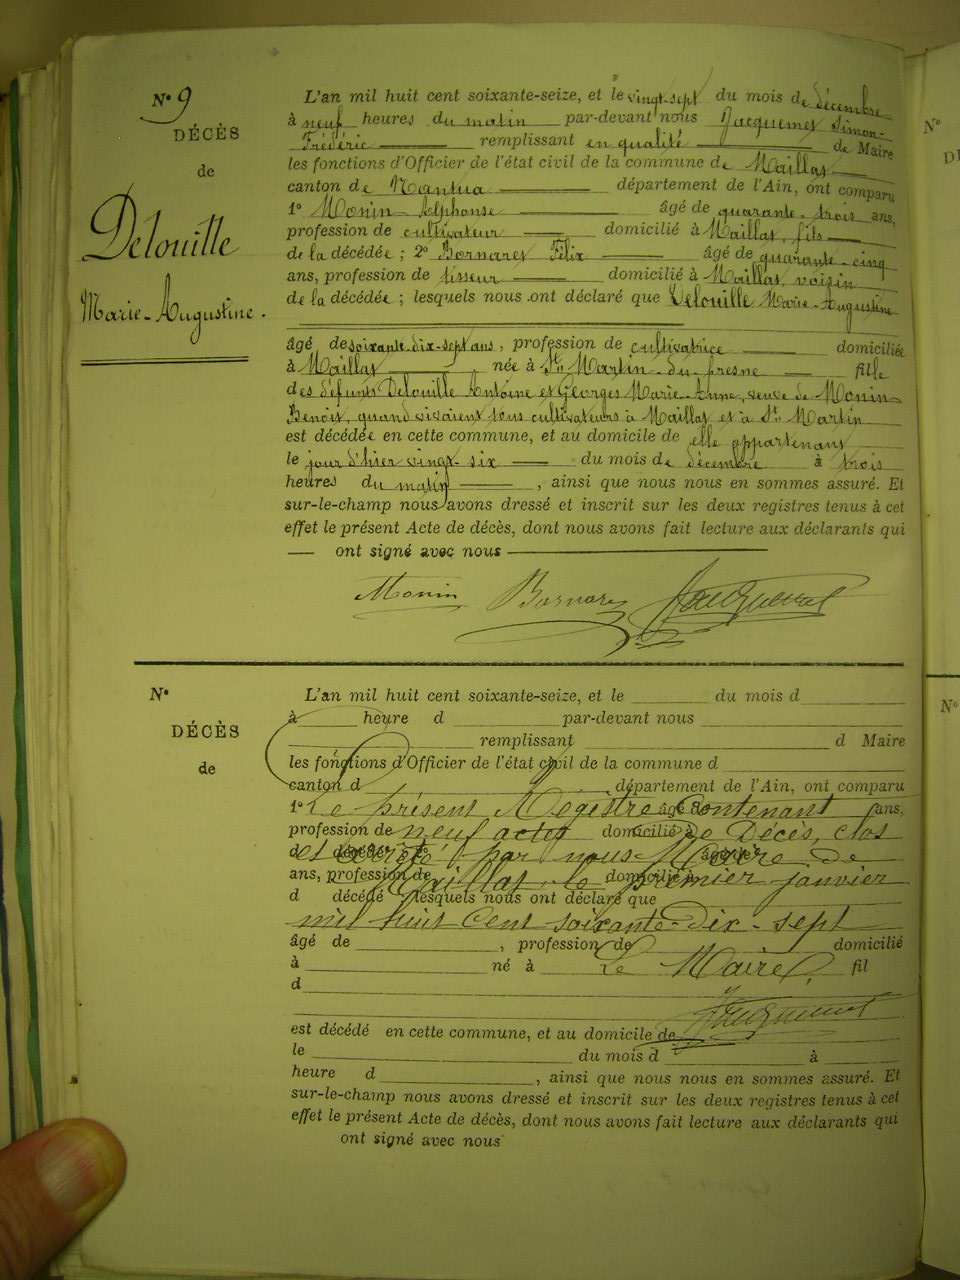 N° 9
DÉCÈS
de
Delouille
Marie-Augustine.
L'an mil huit cent soixante-seize, et le vingt-sept du mois de décembre
à neuf heures du matin par-devant nous Jacquemet Simon-
Frédéric remplissant en qualité de Maire
les fonctions d'Officier de l'état civil de la commune de Maillat
canton de Nantua département de l'Ain, ont comparu
1° Monin Alphonse âgé de quarante-trois ans,
profession de cultivateur domicilié à Maillat, fils
de la décédée; 2° Bornarel Félix âgé de quarante-cinq
ans, profession de tisseur domicilié à Maillat, voisin
de la décédée; lesquels nous ont déclaré que Delouille Marie-Augustine
âgé de soixante-dix-sept ans, profession de cultivatrice domiciliée
à Maillat, née à St Martin-du-fresne fille
des défunts Delouille Antoine et Georges Marie-Anne, veuve de Monin
Benoit, quand vivaient tous cultivateurs à Maillat et à St Martin
est décédée en cette commune, et au domicile de elle appartenant
le jour d'hier vingt-six du mois de décembre à trois
heures du matin, ainsi que nous nous en sommes assuré. Et
sur-le-champ nous avons dressé et inscrit sur les deux registres tenus à cet
effet le présent Acte de décès, dont nous avons fait lecture aux déclarants qui
ont signé avec nous
Monin Bornarel Jacquemet
N°
DÉCÈS
de
L'an mil huit cent soixante-seize, et le du mois d
à heure d par-devant nous
remplissant d Maire
les fonctions d'Officier de l'état civil de la commune d
canton d département de l'Ain, ont comparu
1° âgé de ans,
Le présent Registre contenant
profession de domicilié à
neuf actes de Décès, clos
d décédé; 2° âgé de
et arrêté par nous Maire de
ans, profession de domicilié à
Maillat, le premier janvier
d décédé; lesquels nous ont déclaré que
mil huit cent soixante-dix-sept
âgé de , profession de domicilié
à né à fil
Le Maire,
d
Jacquemet
est décédé en cette commune, et au domicile de
le du mois d à
heure d , ainsi que nous nous en sommes assuré. Et
sur-le-champ nous avons dressé et inscrit sur les deux registres tenus à cet
effet le présent Acte de décès, dont nous avons fait lecture aux déclarants qui
ont signé avec nous
N°
N°